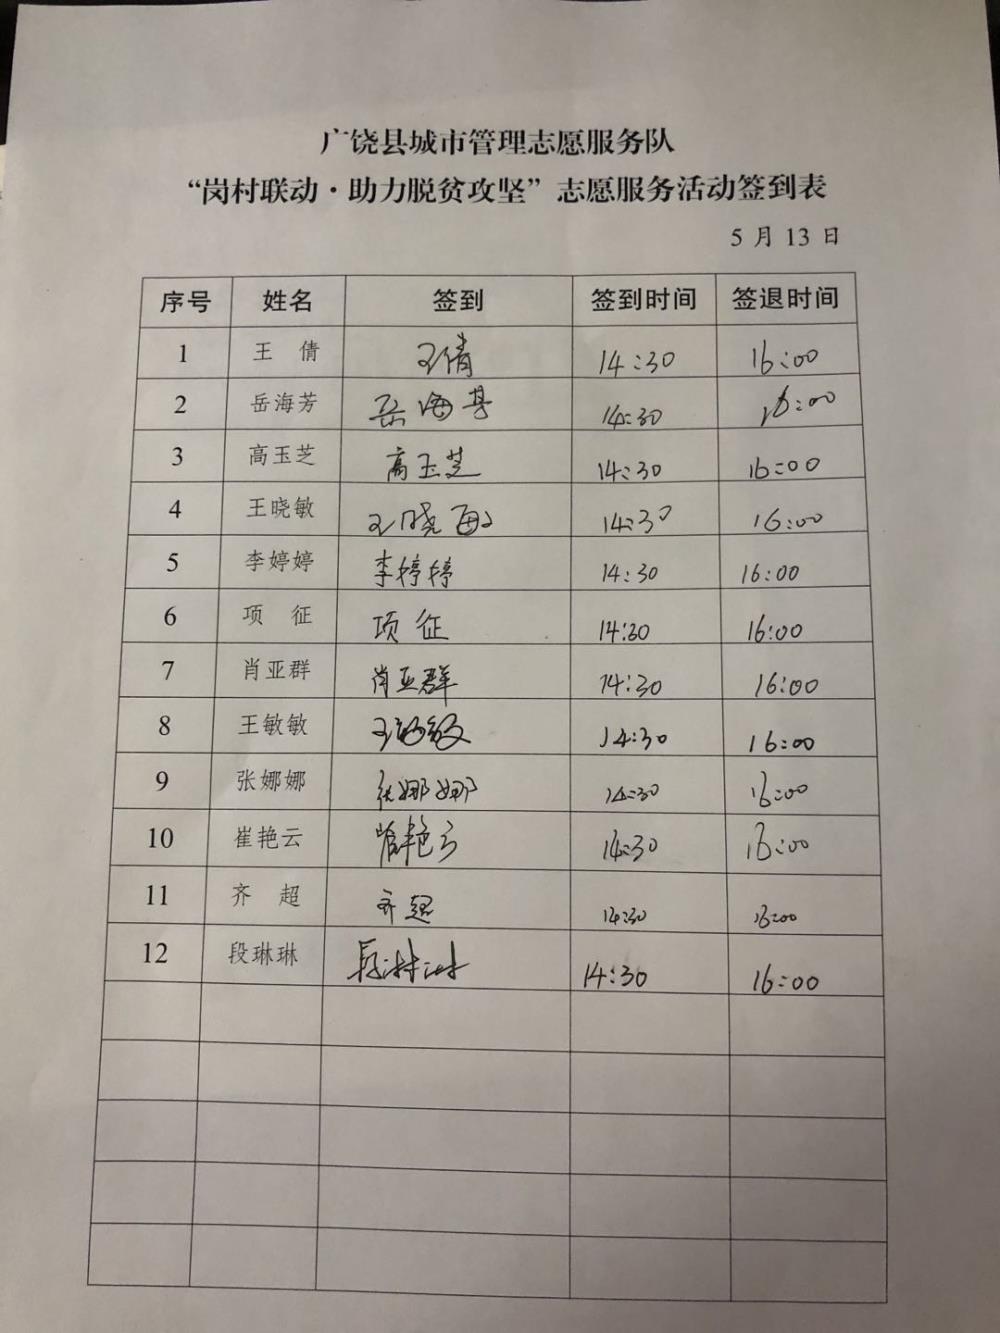 广饶县城市管理志愿服务队
“岗村联动·助力脱贫攻坚”志愿服务活动签到表
5 月 13 日
序号 姓名 签到 签到时间 签退时间
1 王 倩 王倩 14:30 16:00
2 岳海芳 岳海芳 14:30 16:00
3 高玉芝 高玉芝 14:30 16:00
4 王晓敏 王晓敏 14:30 16:00
5 李婷婷 李婷婷 14:30 16:00
6 项 征 项征 14:30 16:00
7 肖亚群 肖亚群 14:30 16:00
8 王敏敏 王敏敏 14:30 16:00
9 张娜娜 张娜娜 14:30 16:00
10 崔艳云 崔艳云 14:30 16:00
11 齐 超 齐超 14:30 16:00
12 段琳琳 段琳琳 14:30 16:00